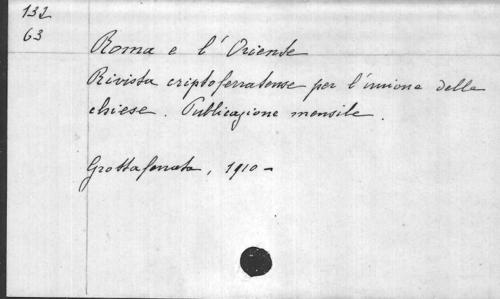 132
63
Roma e l'Oriente
Rivista criptoferratense per l'unione delle
chiese. Publicazione mensile.
Grottaferrata, 1910 -